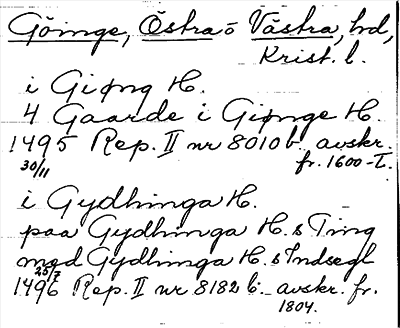 Göinge, Östra o Västra, hd,
Krist. l.
i Giøng H.
4 Gaarde i Giønge H.
1495 Rep. II nr 8010 b. avskr.
30/11 fr. 1600-T.
i Gydhinga H.
paa Gydhinga H.s Ting
med Gydhinga H.s Indsegl
25/7
1496 Rep. II nr 8182 b. avskr. fr.
1804.